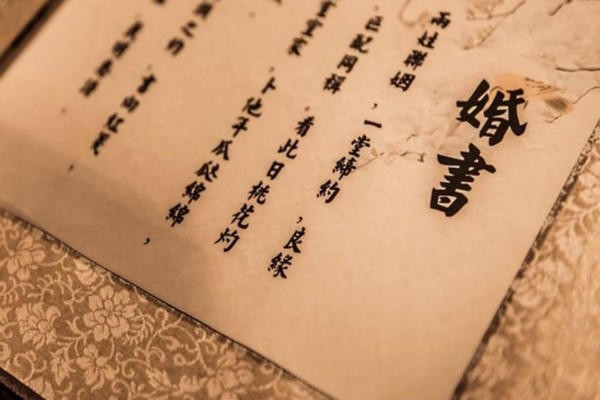 婚書
兩姓聯姻，一堂締約，良緣
匹配同稱。看此日桃花灼
室宜家。卜他年瓜瓞綿綿，
頭之約。書向紅箋，